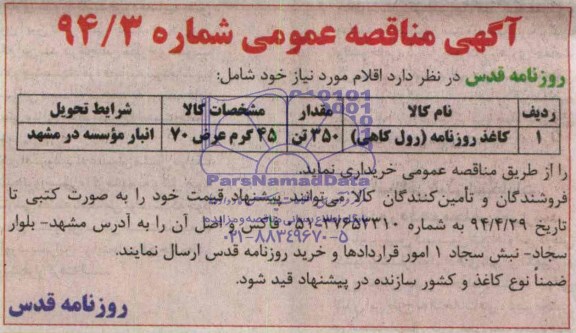 آگهی مناقصه عمومی شماره ۹۴/۳
روزنامه قدس در نظر دارد اقلام مورد نیاز خود شامل:
ردیف نام کالا مقدار مشخصات کالا شرایط تحویل
۱ کاغذ روزنامه (رول کاهی) ۳۵۰ تن ۴۵ گرم عرض ۷۰ انبار مؤسسه در مشهد
را از طریق مناقصه عمومی خریداری نماید.
ParsNamadData
فروشندگان و تأمین‌کنندگان کالا می‌توانند پیشنهاد قیمت خود را به صورت کتبی تا
تاریخ ۹۴/۴/۲۹ به شماره ۳۷۶۵۳۳۱۰-۰۵۱ فاکس و اصل آن را به آدرس مشهد- بلوار
۰۲۱-۸۸۳۴۹۶۷۰-۵
سجاد- نبش سجاد ۱ امور قراردادها و خرید روزنامه قدس ارسال نمایند.
ضمناً نوع کاغذ و کشور سازنده در پیشنهاد قید شود.
روزنامه قدس